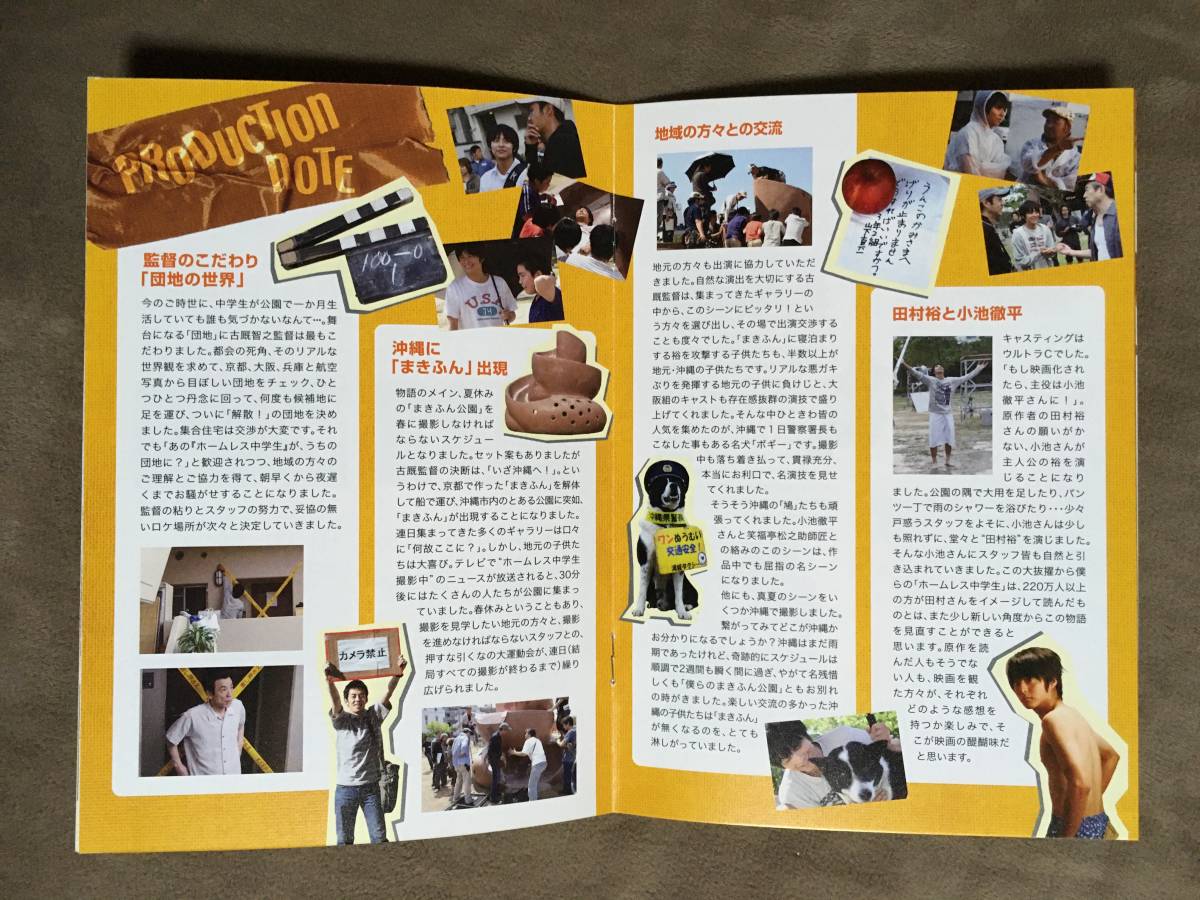 PRODUCTION
NOTE
100-0
1
監督のこだわり
「団地の世界」
今のご時世に、中学生が公園で一か月生
活していても誰も気づかないなんて…。舞
台になる「団地」に古厩智之監督は最もこ
だわりました。都会の死角、そのリアルな
世界観を求めて、京都、大阪、兵庫と航空
写真から目ぼしい団地をチェック、ひと
つひとつ丹念に回って、何度も候補地に
足を運び、ついに「解散!」の団地を決め
ました。集合住宅は交渉が大変です。それ
でも「あの『ホームレス中学生』が、うちの
団地に?」と歓迎されつつ、地域の方々の
ご理解とご協力を得て、朝早くから夜遅
くまでお騒がせすることになりました。
監督の粘りとスタッフの努力で、妥協の無
いロケ場所が次々と決定していきました。
カメラ禁止
U.S.A
沖縄に
「まきふん」出現
物語のメイン、夏休み
の「まきふん公園」を
春に撮影しなければ
ならないスケジュー
ルとなりました。セット案もありましたが
古厩監督の決断は、「いざ沖縄へ!」。とい
うわけで、京都で作った「まきふん」を解体
して船で運び、沖縄市内のとある公園に突如、
「まきふん」が出現することになりました。
連日集まってきた多くのギャラリーは口々
に「何故ここに?」。しかし、地元の子供た
ちは大喜び。テレビで“ホームレス中学生
撮影中”のニュースが放送されると、30分
後にはたくさんの人たちが公園に集まっ
ていました。春休みということもあり、
撮影を見学したい地元の方々と、撮影
を進めなければならないスタッフとの、
押すな引くなの大運動会が、連日(結
局すべての撮影が終わるまで)繰り
広げられました。
地域の方々との交流
地元の方々も出演に協力していただ
きました。自然な演出を大切にする古
厩監督は、集まってきたギャラリーの
中から、このシーンにピッタリ!とい
う方々を選び出し、その場で出演交渉する
ことも度々でした。「まきふん」に寝泊まり
する裕を攻撃する子供たちも、半数以上が
地元・沖縄の子供たちです。リアルな悪ガキ
ぶりを発揮する地元の子供に負けじと、大
阪組のキャストも存在感抜群の演技で盛り
上げてくれました。そんな中ひときわ皆の
人気を集めたのが、沖縄で1日警察署長も
こなした事もある名犬「ボギー」です。撮影
中も落ち着き払って、貫禄充分、
本当にお利口で、名演技を見せ
てくれました。
そうそう沖縄の「鳩」たちも頑
張ってくれました。小池徹平
さんと笑福亭松之助師匠と
の絡みのこのシーンは、作
品中でも屈指の名シーン
になりました。
他にも、真夏のシーンをい
くつか沖縄で撮影しました。
繋がってみてどこが沖縄か
お分かりになるでしょうか?沖縄はまだ雨
期であったけれど、奇跡的にスケジュールは
順調で2週間も瞬く間に過ぎ、やがて名残惜
しくも「僕らのまきふん公園」ともお別れ
の時がきました。楽しい交流の多かった沖
縄の子供たちは「まきふん」
が無くなるのを、とても
淋しがっていました。
沖縄県警察
ワンぬうむい
交通安全!
うんこのかみさまへ
げりが止まりません
どうすればいいですか?
田村裕と小池徹平
キャスティングは
ウルトラCでした。
「もし映画化され
たら、主役は小池
徹平さんに!」。
原作者の田村裕
さんの願いがか
ない、小池さんが
主人公の裕を演
じることになり
ました。公園の隅で大用を足したり、パン
ツ一丁で雨のシャワーを浴びたり・・・少々
戸惑うスタッフをよそに、小池さんは少し
も照れずに、堂々と“田村裕”を演じました。
そんな小池さんにスタッフ皆も自然と引
き込まれていきました。この大抜擢から僕
らの「ホームレス中学生」は、220万人以上
の方が田村さんをイメージして読んだも
のとは、また少し新しい角度からこの物語
を見直すことができると
思います。原作を読
んだ人もそうでな
い人も、映画を観
た方々が、それぞれ
どのような感想を
持つか楽しみで、そ
こが映画の醍醐味だ
と思います。